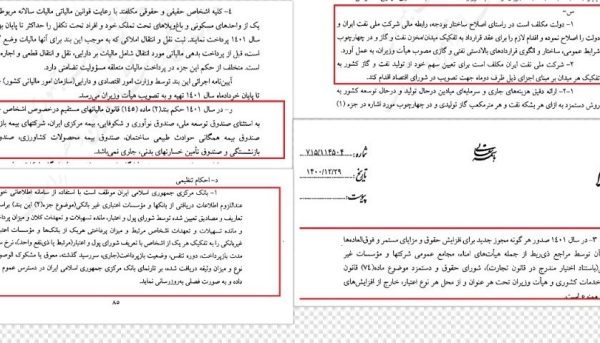 س-
۱- دولت مکلف است در راستای اصلاح ساختار بودجه، رابطه مالی شرکت ملی نفت ایران و
دولت را اصلاح نموده و اقدام لازم را برای عقد قرارداد به تفکیک میدان/مخزن نفت و گاز و در چهارچوب
شرایط عمومی، ساختار و الگوی قراردادهای بالادستی نفتی و گازی مصوب هیأت وزیران، به عمل آورد.
۲- شرکت ملی نفت ایران مکلف است برای تعیین سهم خود از تولید نفت و گاز کشور به
تفکیک هر میدان بر مبنای اجزای ذیل ظرف دوماه جهت تصویب در شورای اقتصاد اقدام کند.
۲-۱- ارائه دقیق هزینه‌های جاری و سرمایه‌ای میادین درحال تولید و درحال توسعه کشور به
روش دستمزد به ازای هر بشکه نفت و هر مترمکعب گاز تولیدی و در چهارچوب مورد اشاره در جزء (۱)
شماره: ۷۱۵/۱۱۴۵۰۴
تاریخ: ۱۴۰۰/۱۲/۲۹
پیوست:
۳- در سال ۱۴۰۱ صدور هر گونه مجوز جدید برای افزایش حقوق و مزایای مستمر و فوق‌العاده‌ها
توسط مراجع ذی‌ربط از جمله هیأت‌های امناء، مجامع عمومی شرکتها و مؤسسات غیر
(باستناد اختیار مندرج در قانون تجارت)، شورای حقوق و دستمزد موضوع ماده(۷۴) قانون
کشوری و هیأت وزیران تحت هر عنوان و از محل هر نوع اعتبار، خارج از افزایش‌های
ممنوع است.
۴- کلیه اشخاص حقیقی و حقوقی مکلفند با رعایت قوانین مالیاتی مالیات سالانه
یک از واحدهای مسکونی و باغ‌ویلاهای تحت تملک خود و افراد تحت تکفل را حداکثر تا پایان
سال ۱۴۰۱ پرداخت نمایند. ثبت نقل و انتقال املاکی که به موجب این بند برای آنها مالیات وضع
است، قبل از پرداخت بدهی مالیاتی مورد انتقال شامل مالیات بر دارایی، نقل و انتقال قطعی و اجاره
متخلف از حکم این جزء، در پرداخت مالیات متعلقه مسؤولیت تضامنی دارد.
آیین‌نامه اجرائی این بند توسط وزارت امور اقتصادی و دارایی(سازمان امور مالیاتی کشور)
تا پایان خردادماه سال ۱۴۰۱ تهیه و به تصویب هیأت وزیران می‌رسد.
ر- در سال ۱۴۰۱ حکم بند(۲) ماده (۱۴۵) قانون مالیاتهای مستقیم درخصوص اشخاص
به استثنای صندوق توسعه ملی، صندوق نوآوری و شکوفایی، بیمه مرکزی ایران، شرکتهای بیمه
صندوق بیمه همگانی حوادث طبیعی ساختمان، صندوق بیمه محصولات کشاورزی، صندوق
بازنشستگی و صندوق تأمین خسارتهای بدنی، جاری نمی‌باشد.
د- احکام تنظیمی
۱- بانک مرکزی جمهوری اسلامی ایران موظف است با استفاده از سامانه اطلاعاتی
عندالزوم اطلاعات دریافتی از بانکها و مؤسسات اعتباری غیر بانکی(موضوع جزء(۲) این بند) براساس
تعاریف و مصادیق تعیین شده توسط شورای پول و اعتبار، مانده تسهیلات و تعهدات کلان و میزان
و مانده تسهیلات و تعهدات اشخاص مرتبط و میزان پرداختی هریک از بانکها و مؤسسات
غیربانکی را به تفکیک هر یک از اشخاص با تعریف شورای پول و اعتبار(مرتبط یا ذی‌نفع واحد)، نرخ سود
مدت بازپرداخت، دوره تنفس، وضعیت بازپرداخت(جاری، سررسید گذشته، معوق یا مشکوک الوصول)
نوع و میزان وثیقه دریافت شده، بر تارنمای بانک مرکزی جمهوری اسلامی ایران در دسترس عموم
داده و به صورت فصلی به‌روزرسانی نماید.
۸۵